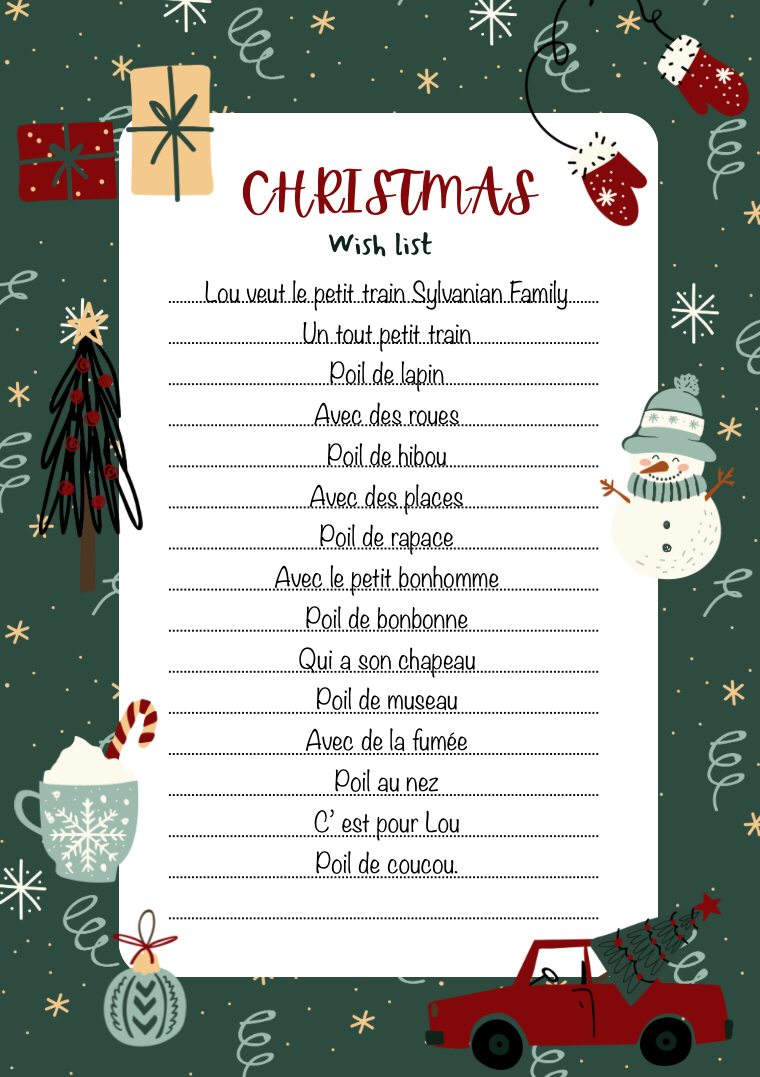 CHRISTMAS
Wish list
Lou veut le petit train Sylvanian Family
Un tout petit train
Poil de lapin
Avec des roues
Poil de hibou
Avec des places
Poil de rapace
Avec le petit bonhomme
Poil de bonbonne
Qui a son chapeau
Poil de museau
Avec de la fumée
Poil au nez
C’ est pour Lou
Poil de coucou.